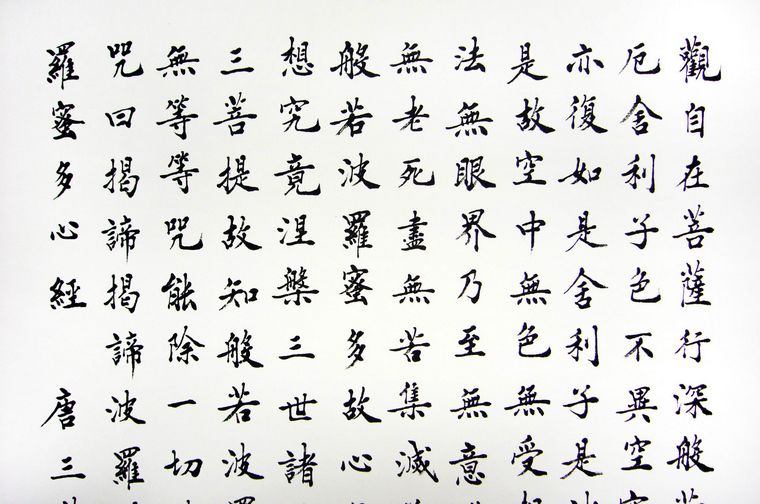 觀自在菩薩行深般
厄舍利子色不異空
亦復如是舍利子是
是故空中無色無受
法無眼界乃至無意
無老死盡無苦集滅
般若波羅蜜多故心
想究竟涅槃三世諸
三菩提故知般若波
無等等咒能除一切
咒曰揭諦揭諦波羅
羅蜜多心經 唐三